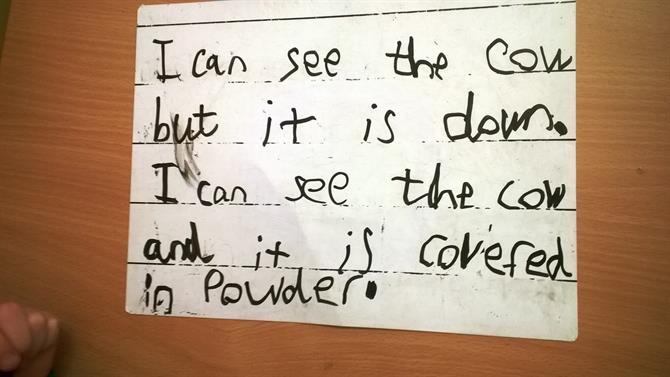 I can see the cow
but it is down.
I can see the cow
and it is covered
in Powder.